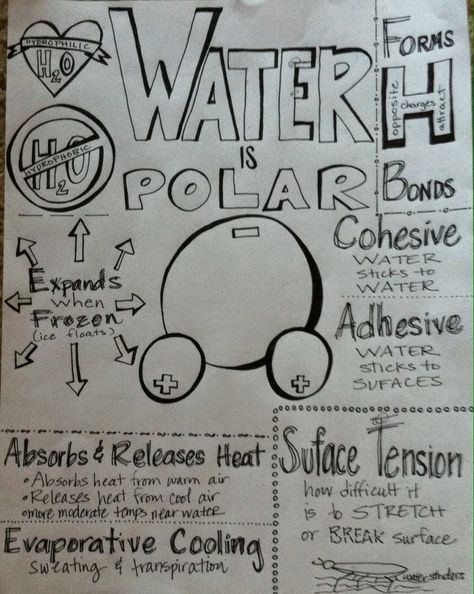 HYDROPHILIC
H2O
HYDROPHOBIC
H2O
WATER
IS
POLAR
FORMS
H
opposite
charges
attract
BONDS
−
+
+
Expands
when
Frozen
(ice floats)
Cohesive
WATER
sticks to
WATER
Adhesive
WATER
sticks to
SUFACES
Absorbs & Releases Heat
• Absorbs heat from warm air
• Releases heat from cool air
• more moderate temps near water
Evaporative Cooling
sweating & transpiration
Suface Tension
how difficult it
is to STRETCH
or BREAK surface
water striders